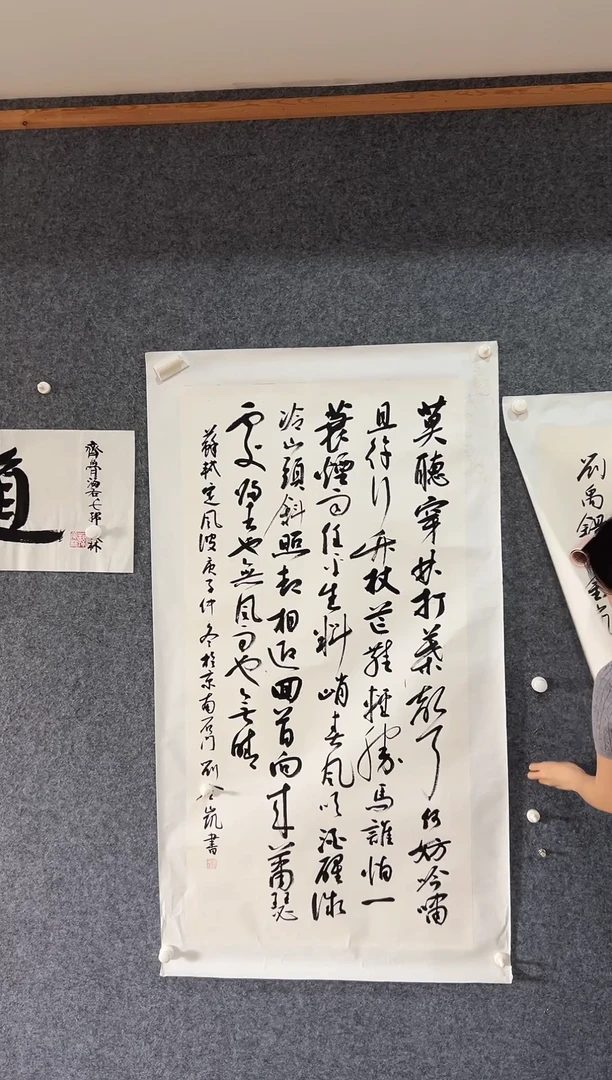 劉禹錫
莫聽穿林打葉聲何妨吟嘯
且徐行竹杖芒鞋輕勝馬誰怕一
蓑煙雨任平生料峭春風吹酒醒微
冷山頭斜照却相迎回首向來蕭瑟
處歸去也無風雨也無晴
蘇軾定風波庚子仲冬於京南石門劉凱書
道